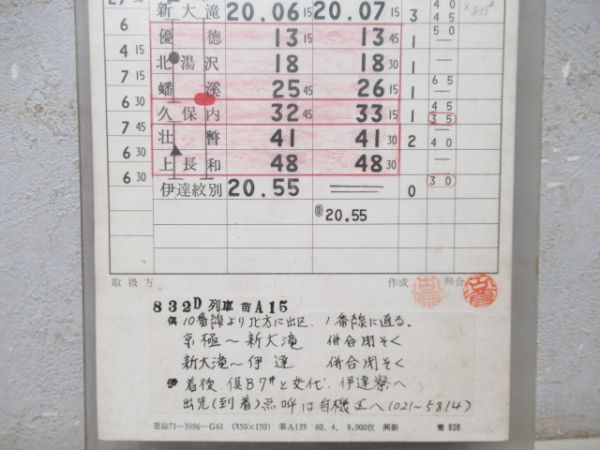 新大滝 20.06 15 20.07 15 3 40 45
6 優徳 13 15 13 45 1 50
4 15 北湯沢 18 18 30 1
6 蟠渓 25 45 26 15 1 65
6 30 久保内 32 45 33 15 1 45 35
7 45 壮瞥 41 41 30 2 40
6 30 上長和 48 48 30
6 30 伊達紋別 20.55 0 30
20.55
取扱方 作成 照合
832D 列車 苗A15
10番線より北方に出区、1番線に直る。
京極～新大滝 併合閉そく
新大滝～伊達 併合閉そく
着後、倶B7サと交代、伊達寮へ
出先(到着)点呼は自機区へ(021～5814)
登録71-3896-G61 (350×150) 第A135 60.4. 8,900枚 興新